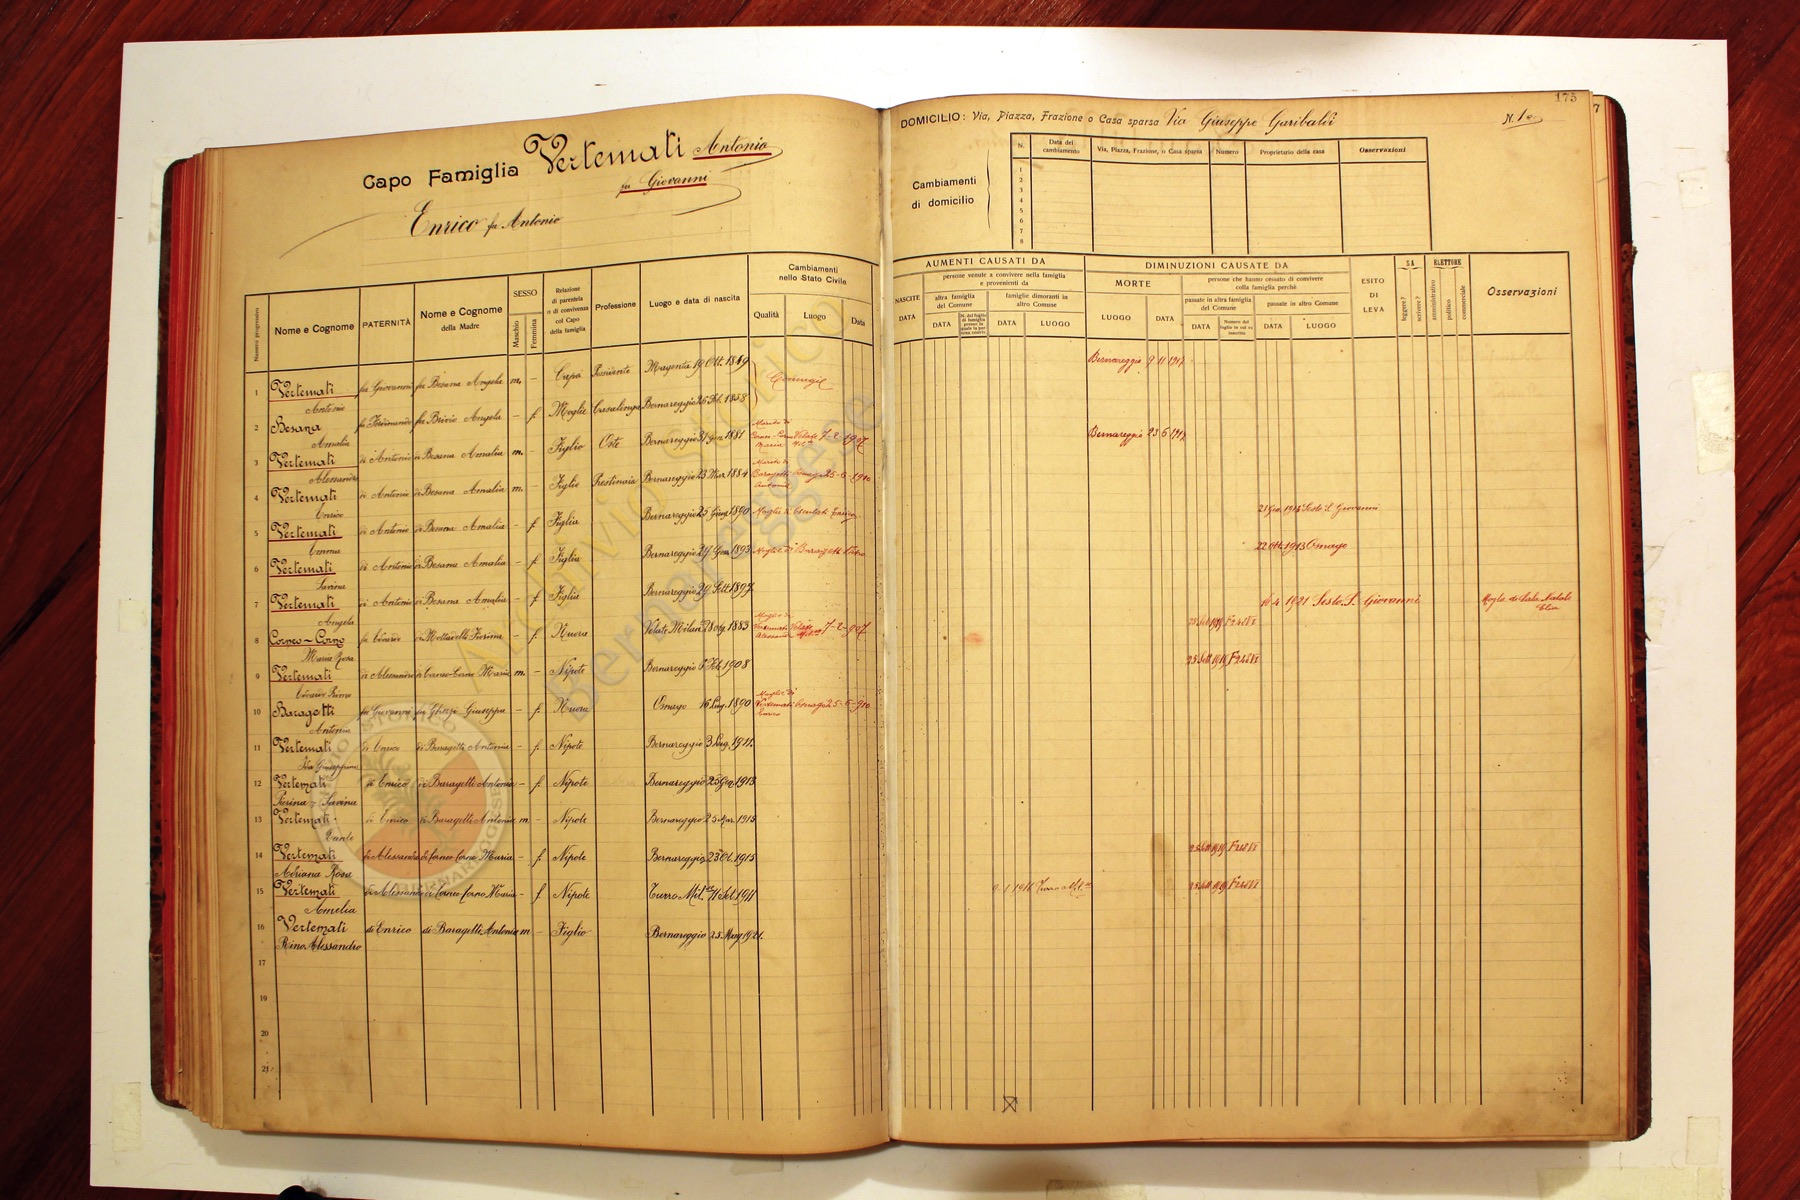 Capo Famiglia Vertemati Antonio
fu Giovanni
Enrico fu Antonio
Numero progressivo
Nome e Cognome
PATERNITÀ
Nome e Cognome
della Madre
SESSO
Maschio
Femmina
Relazione
di parentela
o di convivenza
col Capo
della famiglia
Professione
Luogo e data di nascita
Cambiamenti
nello Stato Civile
Qualità
Luogo
Data
1 Vertemati fu Giovanni fu Besana Angela m. - Capo Possidente Magenta 19 Ott. 1849 Coniugi
Antonio
2 Besana fu Ferdinando fu Brivio Angela - f. Moglie Casalinga Bernareggio 1858
Amalia
3 Vertemati di Antonio di Besana Amalia m. - Figlio Oste Bernareggio 31 Gen. 1881 Marito di Maria Velate Mil. 7-2-1907
Alessandro
4 Vertemati di Antonio di Besana Amalia m. - Figlio Prestinaio Bernareggio 23 Mar. 1884 Marito di Baragetti Antonia Omago 25-6-1910
Enrico
5 Vertemati di Antonio di Besana Amalia - f. Figlia Bernareggio 25 Giug. 1890 Moglie di
Emma
6 Vertemati di Antonio di Besana Amalia - f. Figlia Bernareggio 29 Gen. 1893 Moglie di
Savina
7 Vertemati di Antonio di Besana Amalia - f. Figlia Bernareggio 29 Sett. 1897
Angela
8 Corneo-Corno fu Cesare di - f. Nuora Velate Milan. 28 1883 Moglie di Vertemati Alessandro Velate Mil. 7-2-907
Maria Rosa
9 Vertemati di Alessandro di Corneo-Corno Maria m. - Nipote Bernareggio 6 Feb. 1908
Cesare Primo
10 Baragetti fu Giovanni fu Ghezzi Giuseppa - f. Nuora Omago 16 Lug. 1890 Moglie di Vertemati Enrico Omago 25-6-910
Antonia
11 Vertemati di Enrico di Baragetti Antonia - f. Nipote Bernareggio 3 Lug. 1911.
Ida Giuseppina
12 Vertemati di Enrico di Baragetti Antonia - f. Nipote Bernareggio 25 Giug. 1913
Pierina - Savina
13 Vertemati di Enrico di Baragetti Antonia m. - Nipote Bernareggio 25 Mar. 1915
Dante
14 Vertemati di Alessandro di Corneo Corno Maria - f. Nipote Bernareggio 23 Ot. 1915
Adriana Rosa
15 Vertemati di Alessandro di Corneo Corno Maria - f. Nipote Turro Mil.se 11 Set 1911
Amelia
16 Vertemati di Enrico di Baragetti Antonia m - Figlio Bernareggio 25 Mag 1921.
Rino Alessandro
17
18
19
20
21
175
7
DOMICILIO: Via, Piazza, Frazione o Casa sparsa Via Giuseppe Garibaldi
Cambiamenti
di domicilio
N.
Data del
cambiamento
Via, Piazza, Frazione, o Casa sparsa
Numero
Proprietario della casa
Osservazioni
1
2
3
4
5
6
7
8
AUMENTI CAUSATI DA
NASCITE
DATA
persone venute a convivere nella famiglia
e provenienti da
altra famiglia
del Comune
DATA
famiglie dimoranti in
altro Comune
DATA
LUOGO
DIMINUZIONI CAUSATE DA
MORTE
LUOGO
DATA
persone che hanno cessato di convivere
colla famiglia perchè
passate in altra famiglia
del Comune
DATA
Numero del
foglio in cui va
inserita
passate in altro Comune
DATA
LUOGO
ESITO
DI
LEVA
SA
leggere?
scrivere?
ELETTORE
amministrativo
politico
commerciale
Osservazioni
Bernareggio 9 11 1917
Bernareggio 23 6 1917
Sesto S. Giovanni
22 Ott. 1913 Omago
16 4 1921 Sesto S. Giovanni Moglie di Sala Natale
25 Sett 1919
25 Sett 1919
25 Sett 1919
9 1 1916 Turro Mil.se 25 Sett 1919
Archivio Storico
Bernareggese